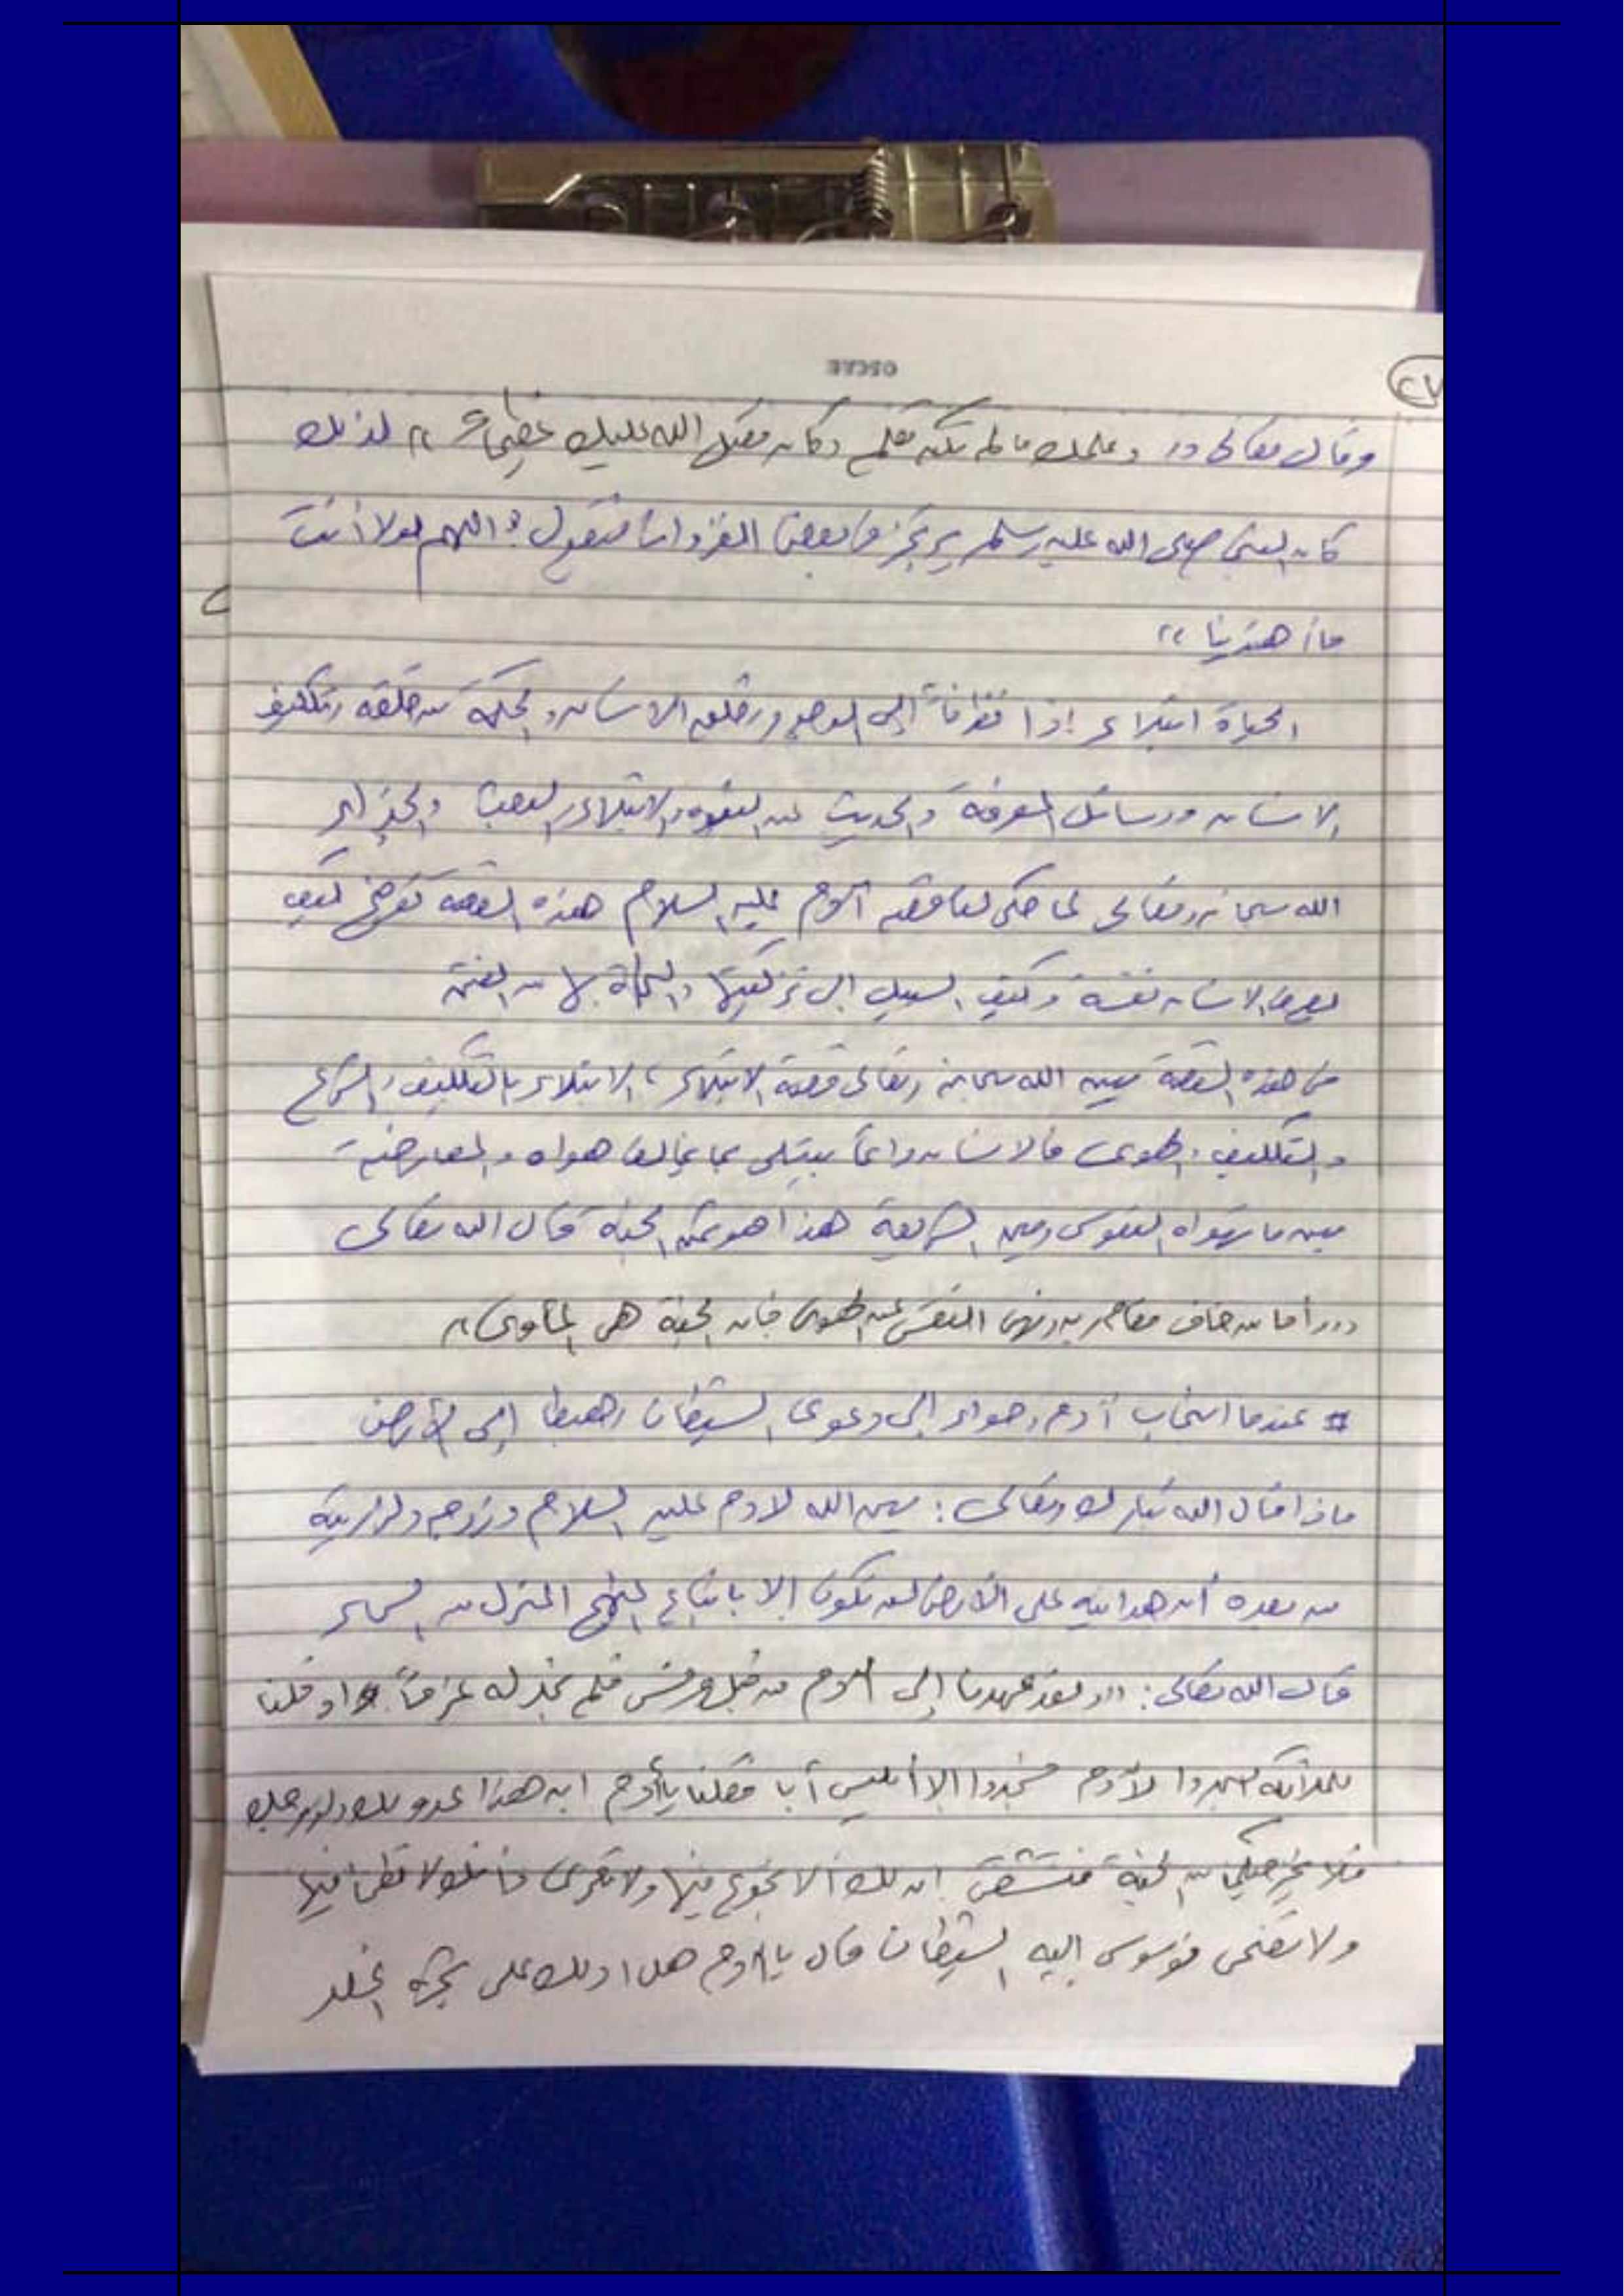 ٢٧
وقال تعالى (( وعلمك ما لم تكن تعلم وكان فضل الله عليك عظيماً )) لذلك
كان النبي صلى الله عليه وسلم يرتجز في بعض الغزوات فيقول : اللهم لولا أنت
ما أهتدينا ))
الحياة ابتلاء إذا نظرنا إلى الوحي وخلق الانسان والحكمة من خلقه وتكليف
الانسان ووسائل المعرفة والحديث عن والابتلاء والبعث والجزاء
الله سبحانه وتعالى لما حكى لنا قصة آدم عليه السلام هذه القصة كيف
يعرف الانسان نفسه وكيف السبيل الى تزكيتها والنجاة بها من الفتن
في هذه القصة يبين الله سبحانه وتعالى قصة الابتلاء ، الابتلاء بالتكليف والشرع
والتكليف والهوى فالانسان دائماً يبتلى بما يخالف هواه والمعارضة
بين ما تهواه النفوس وبين الشريعة هذا هو ثمن الجنة قال الله تعالى
(( وأما من خاف مقام ربه ونهى النفس عن الهوى فإن الجنة هي المأوى ))
# عندما استجاب آدم وحواء إلى دعوى الشيطان وهبطا إلى الأرض
ماذا قال الله تبارك وتعالى : بين الله لادم عليه السلام وزوجه ولذريته
من بعده أن هدايته على الأرض لن تكون إلا باتباع المنهج المنزل من السماء
قال الله تعالى : (( ولقد عهدنا إلى آدم من قبل فنسي فلم نجد له عزماً واذ قلنا
للملائكة اسجدوا لآدم فسجدوا الا أبليس أبا فقلنا يا أدم ان هذا عدو لك ولزوجك
فلا يخرجنكما من الجنة فتشقى ان لك ألا تجوع فيها ولا تعرى وانك لا تظمأ فيها
ولا تضحى فوسوس إليه الشيطان قال يا آدم هل ادلك على شجرة الخلد